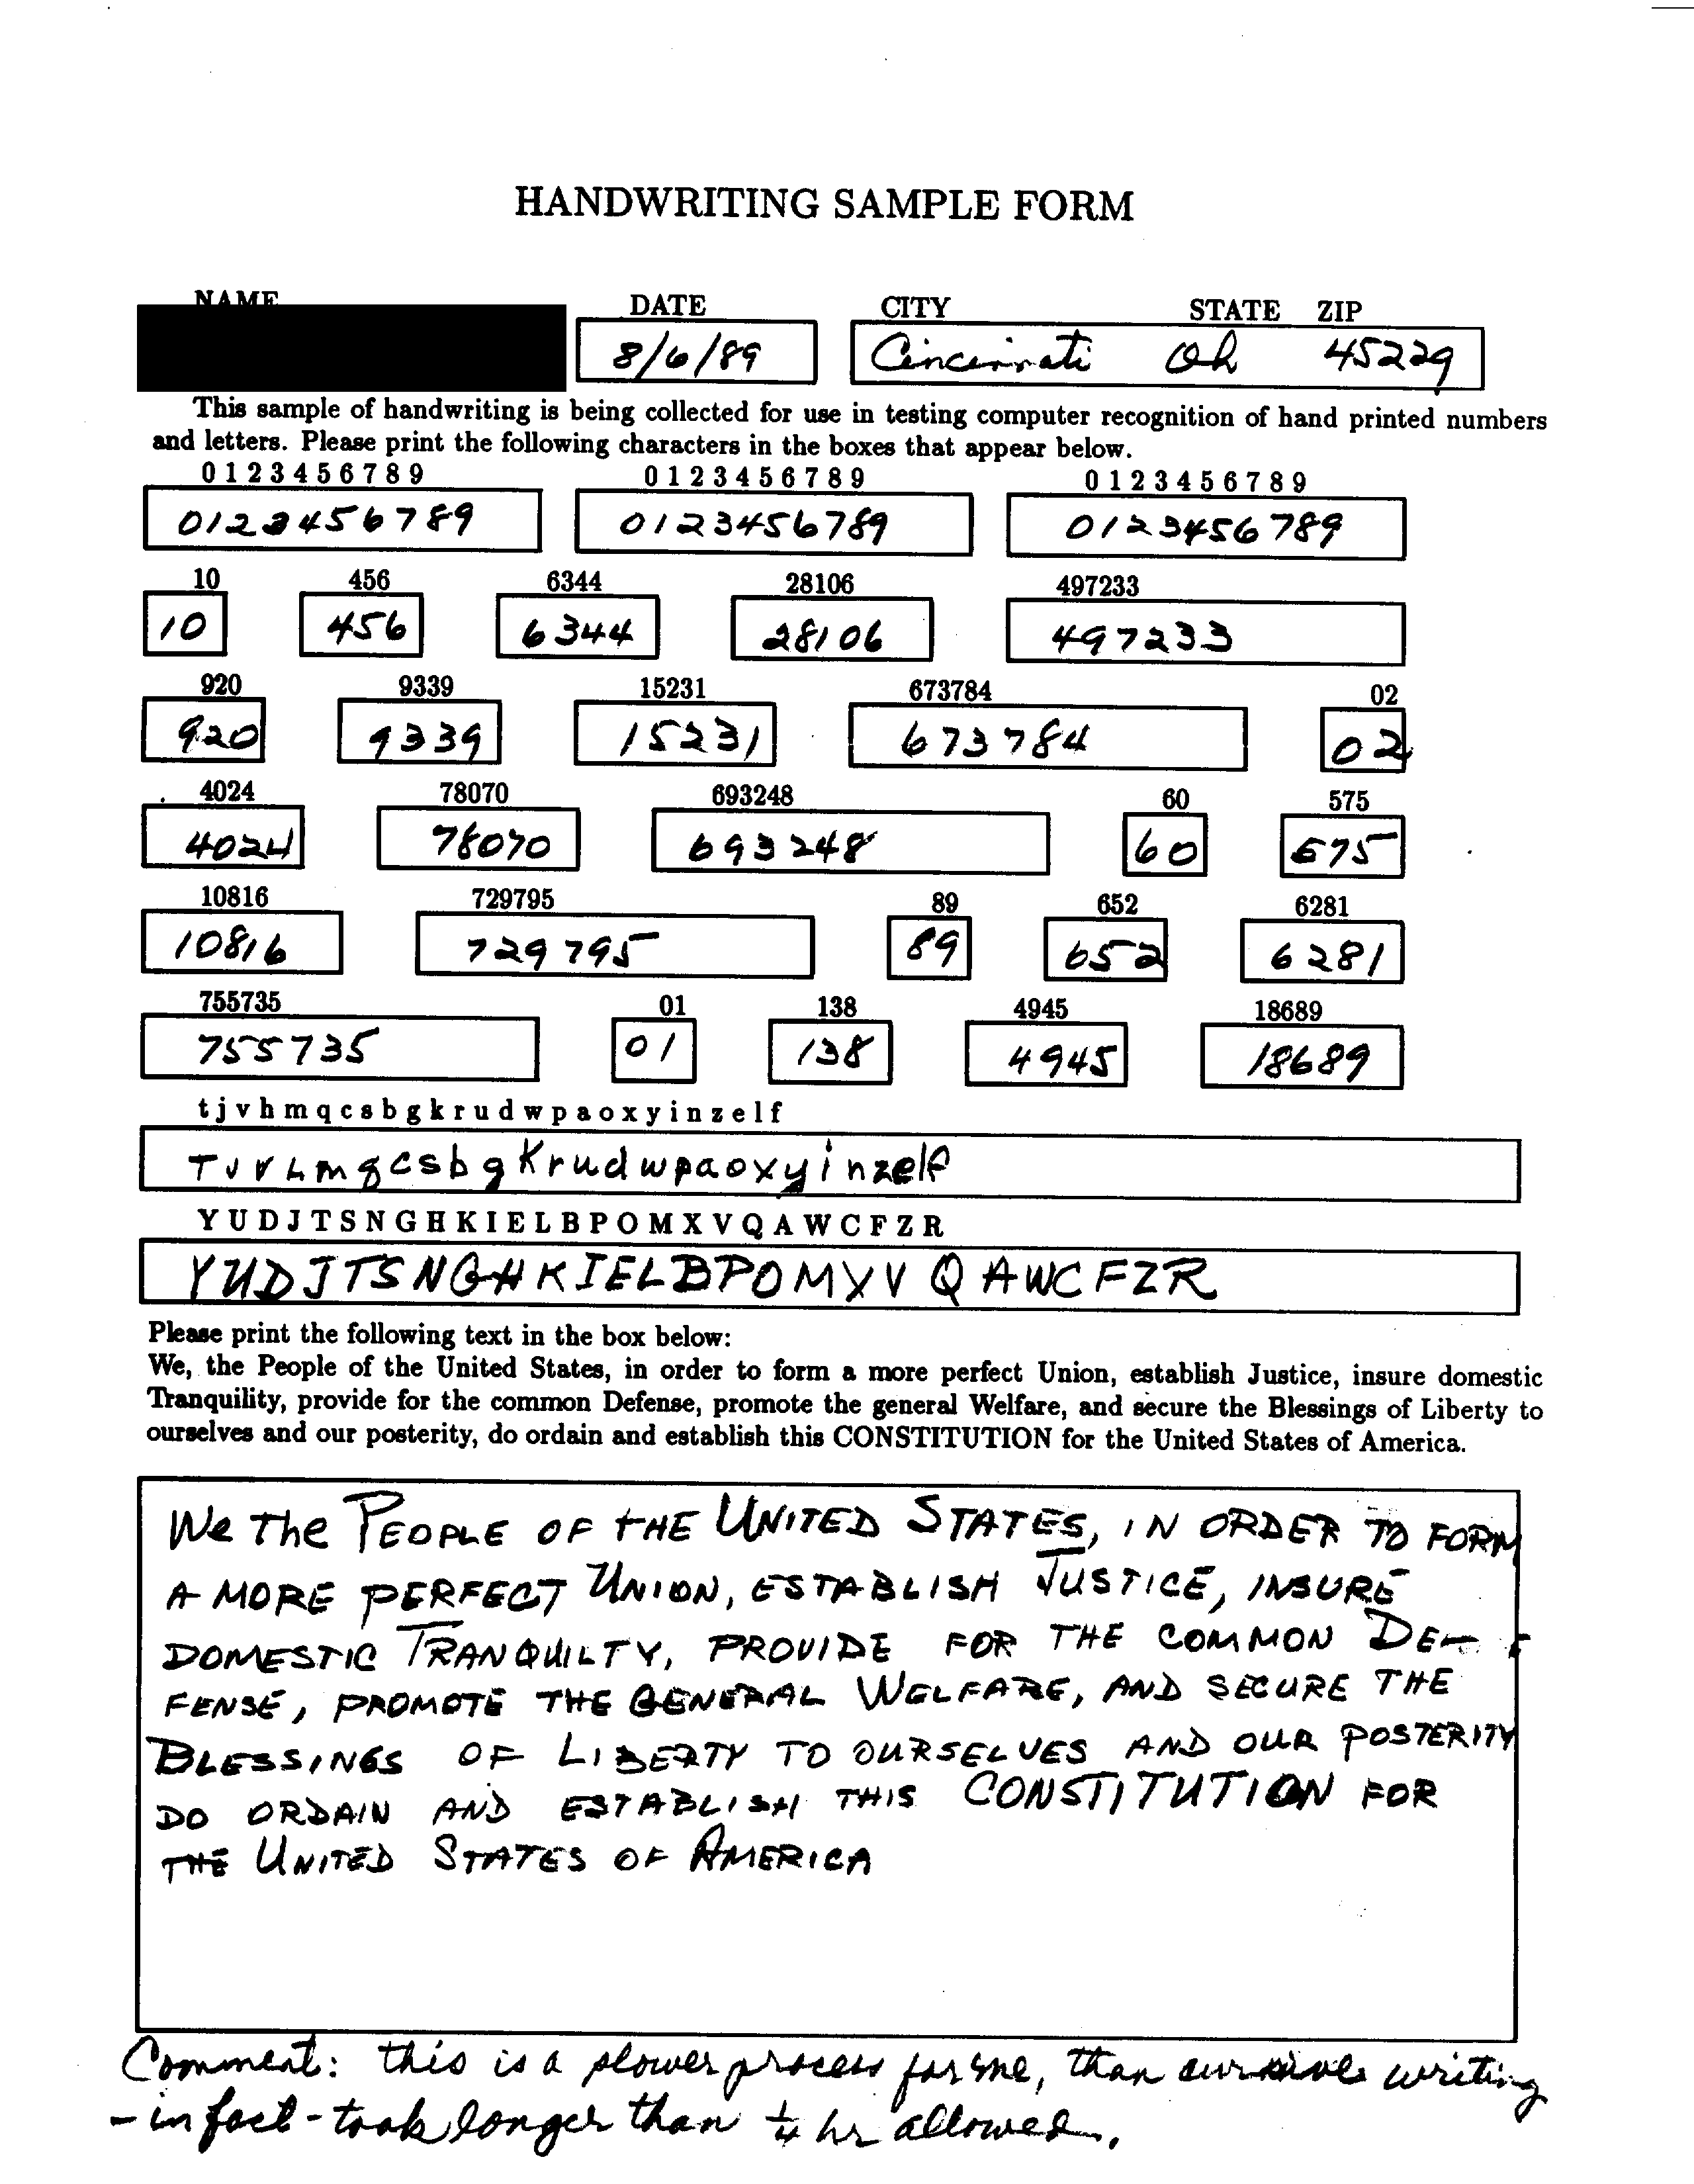 HANDWRITING SAMPLE FORM
NAME DATE CITY STATE ZIP
8/6/89 Cincinnati Oh 45229
This sample of handwriting is being collected for use in testing computer recognition of hand printed numbers
and letters. Please print the following characters in the boxes that appear below.
0 1 2 3 4 5 6 7 8 9 0 1 2 3 4 5 6 7 8 9 0 1 2 3 4 5 6 7 8 9
0123456789 0123456789 0123456789
10 456 6344 28106 497233
10 456 6344 28106 497233
920 9339 15231 673784 02
920 9339 15231 673784 02
4024 78070 693248 60 575
4024 78070 693248 60 575
10816 729795 89 652 6281
10816 729795 89 652 6281
755735 01 138 4945 18689
755735 01 138 4945 18689
t j v h m q c s b g k r u d w p a o x y i n z e l f
TJVhmqcsbgKrudwpaoxyinzelf
Y U D J T S N G H K I E L B P O M X V Q A W C F Z R
YUDJTSNGHKIELBPOMXVQAWCFZR
Please print the following text in the box below:
We, the People of the United States, in order to form a more perfect Union, establish Justice, insure domestic
Tranquility, provide for the common Defense, promote the general Welfare, and secure the Blessings of Liberty to
ourselves and our posterity, do ordain and establish this CONSTITUTION for the United States of America.
We The PEOPLE OF tHE UNITED STATES, IN ORDER TO FORM
A MORE PERFECT UNION, ESTABLISH JUSTICE, INSURE
DOMESTIC TRANQUILTY, PROVIDE FOR THE COMMON DE-
FENSE, PROMOTE THE GENERAL WELFARE, AND SECURE THE
BLESSINGS OF LIBERTY TO OURSELVES AND OUR POSTERITY
DO ORDAIN AND ESTABLISH THIS CONSTITUTION FOR
THE UNITED STATES OF AMERICA
Comment: this is a slower process for me, than cursive writing
- in fact - took longer than 1/4 hr allowed.